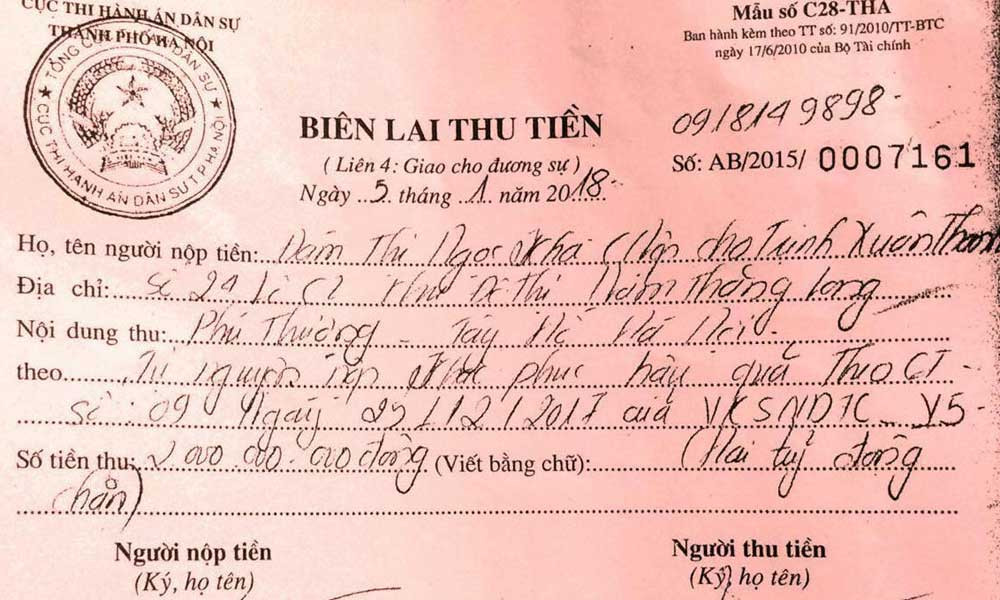 CỤC THI HÀNH ÁN DÂN SỰ
THÀNH PHỐ HÀ NỘI
TỔNG CỤC THI HÀNH ÁN DÂN SỰ
CỤC THI HÀNH ÁN DÂN SỰ T.P HÀ NỘI
Mẫu số C28-THA
Ban hành kèm theo TT số: 91/2010/TT-BTC
ngày 17/6/2010 của Bộ Tài chính
BIÊN LAI THU TIỀN
0918149898-
(Liên 4: Giao cho đương sự)
Số: AB/2015/ 0007161
Ngày 5 tháng 1 năm 2018-
Họ, tên người nộp tiền: Đàm Thị Ngọc Kha (Nộp cho Trịnh Xuân Thanh
Địa chỉ: Số 24 Lô Khu Đô Thị Nam Thăng Long
Nội dung thu: Phú Thượng - Tây Hồ Hà Nội-
theo Tự nguyện nộp khắc phục hậu quả Theo CT
số 09 Ngày /12/2017 của VKSNDTC V5-
Số tiền thu: 2 000.000.000 đồng (Viết bằng chữ): (Hai tỷ đồng
chẵn)
Người nộp tiền
(Ký, họ tên)
Người thu tiền
(Ký, họ tên)